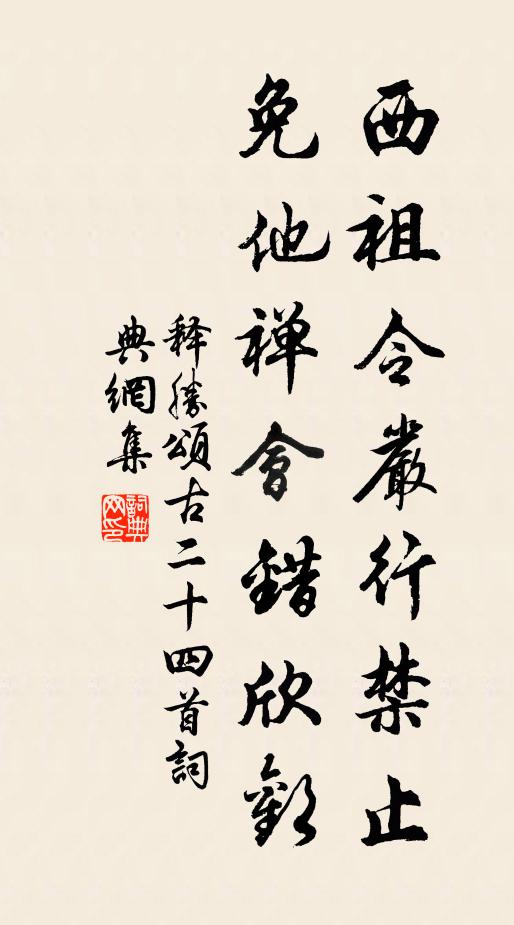 西祖令嚴行禁止
免他禅會錯欣歡
释勝頌古二十四首詞
典網集
詞典网印